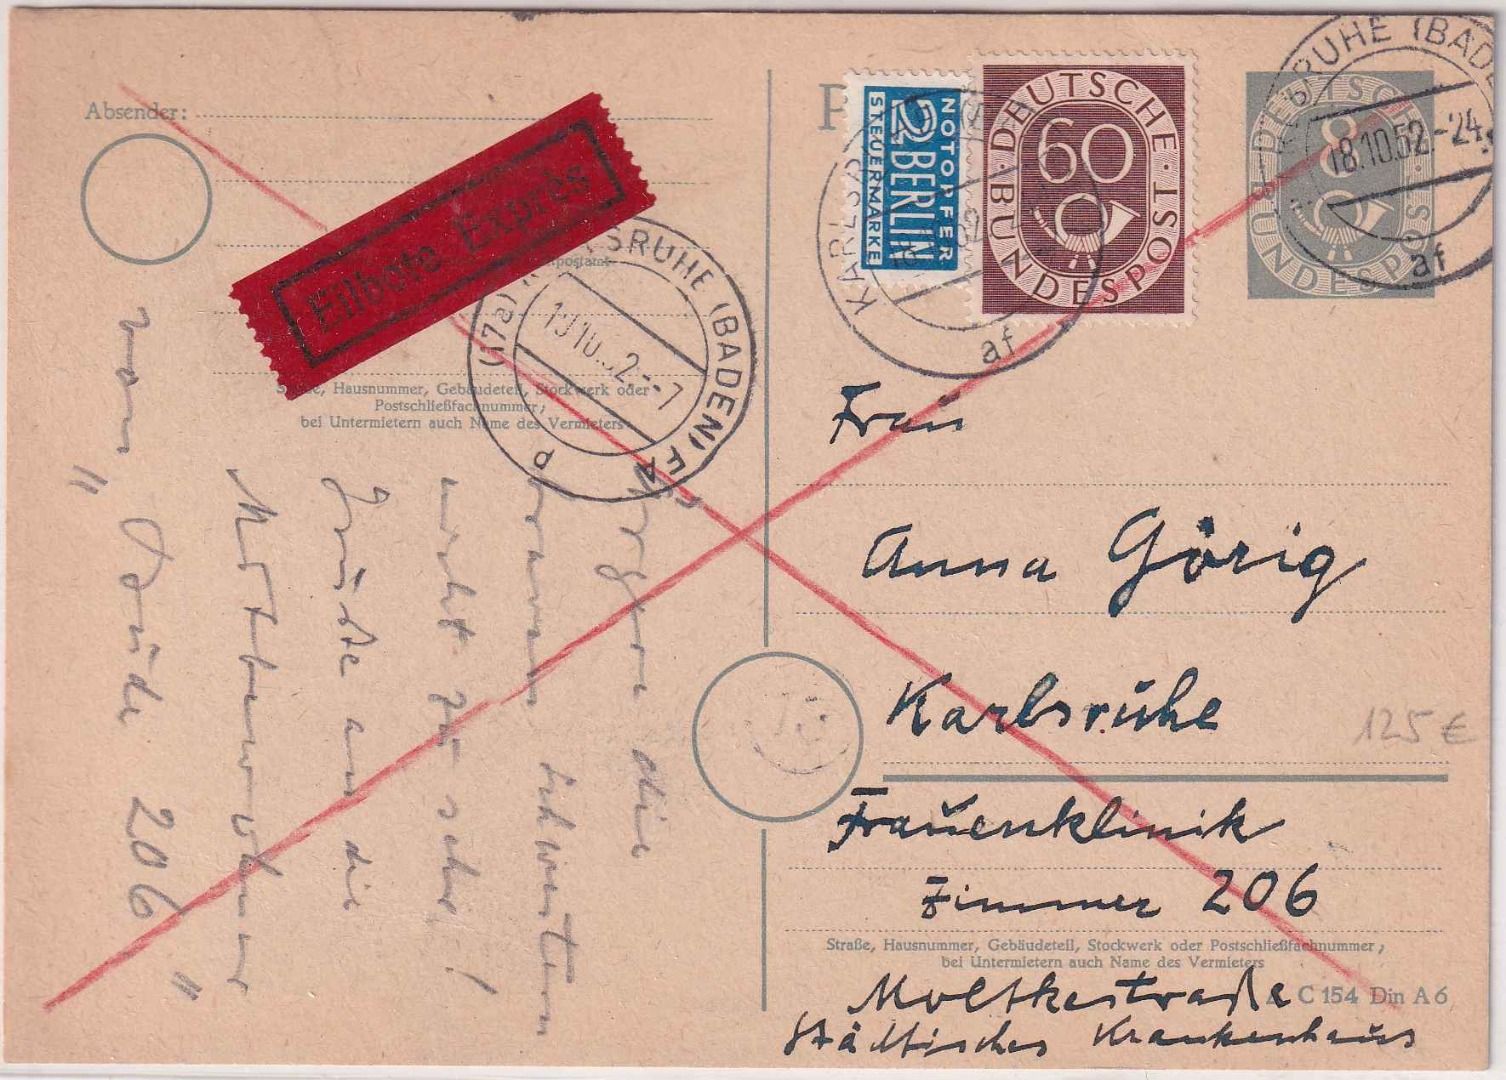 Absender:
Eilbote Exprès
postamt
Straße, Hausnummer, Gebäudeteil, Stockwerk oder
Postschließfachnummer;
bei Untermietern auch Name des Vermieters
(17a) KARLSRUHE (BADEN)
19.10.52.--7
p
Ärgere die
braven Schwestern
nicht zu sehr!
Grüße an die
Mitbewohner
von "Bude 206"
P
NOTOPFER
2 BERLIN
STEUERMARKE
DEUTSCHE BUNDESPOST
60
KARLSRUHE
af
DEUTSCHE BUNDESPOST
8
KARLSRUHE (BADEN)
18.10.52.-24
af
Frau
Anna Görig
Karlsruhe
125 €
Frauenklinik
Zimmer 206
Straße, Hausnummer, Gebäudeteil, Stockwerk oder Postschließfachnummer;
bei Untermietern auch Name des Vermieters
Moltkestraße
C 154 Din A 6
Städtisches Krankenhaus